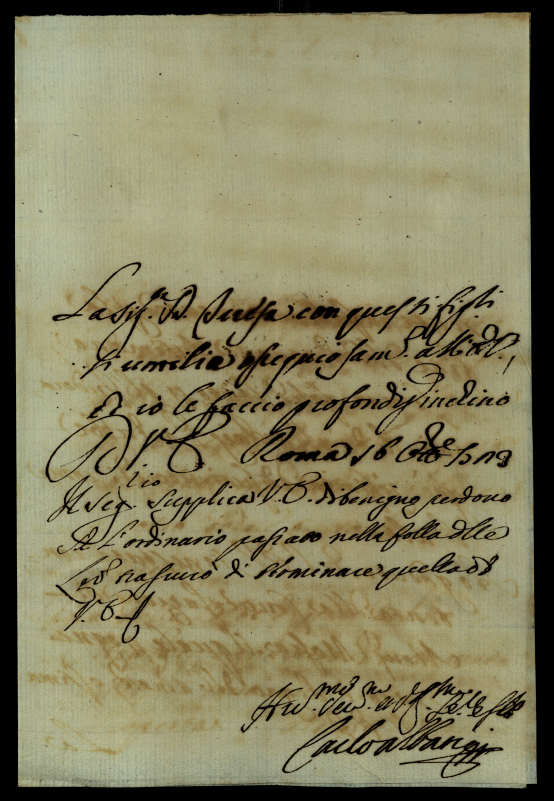 La Sig.ra D. Giulia con questi figli
s'umilia ossequiosam.e all' E. V.,
et io le faccio profondiss. inchino
D V. E. Roma 16 Xbre 1713
Il Seg.rio supplica V. E. di benigno perdono
se l'ordinario passato nella folla delle
Lre trascurò di nominare quella di
V. E.
Hu.mo De.mo et Obl.mo
Carlo Albani